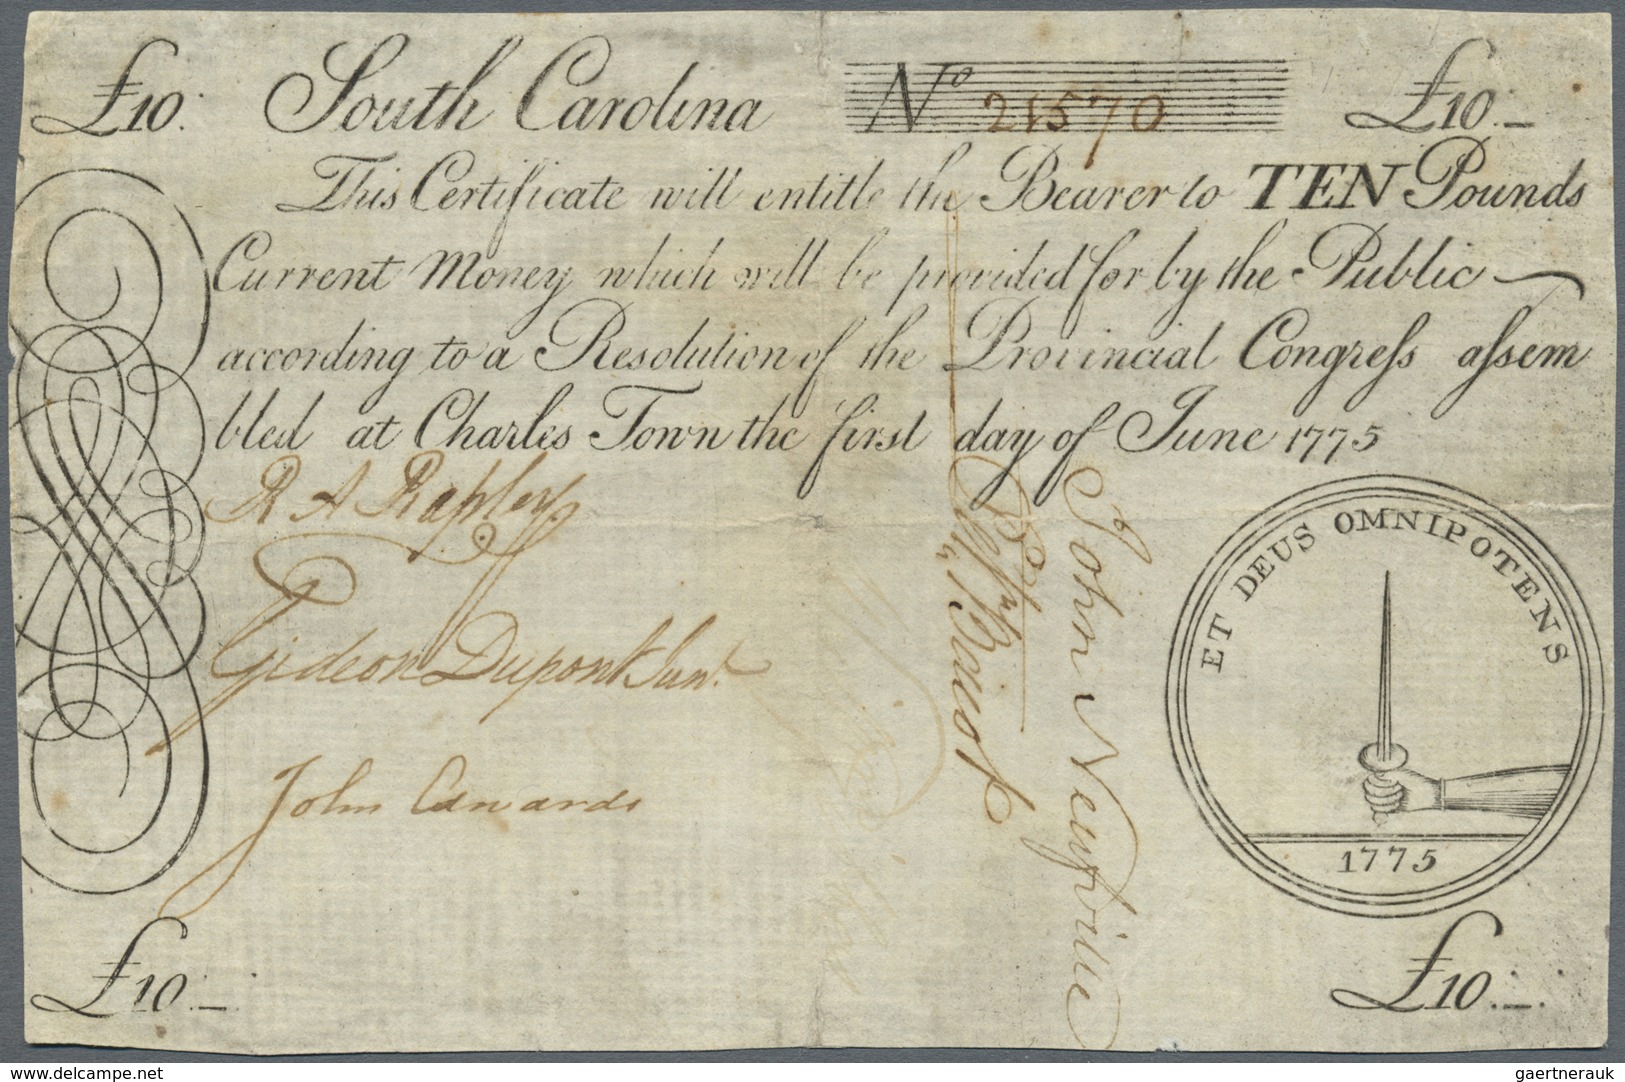 £10. South Carolina No 21570 £10.
This Certificate will entitle the Bearer to TEN Pounds
Current Money which will be provided for by the Public
according to a Resolution of the Provincial Congreſs aſsem
bled at Charles Town the first day of June 1775
R A Rapley
Gideon Dupont Junr.
John Edwards
Benjn
John Neufville
ET DEUS OMNIPOTENS
1775
£10. £10.
www.delcampe.net gaertnerauk